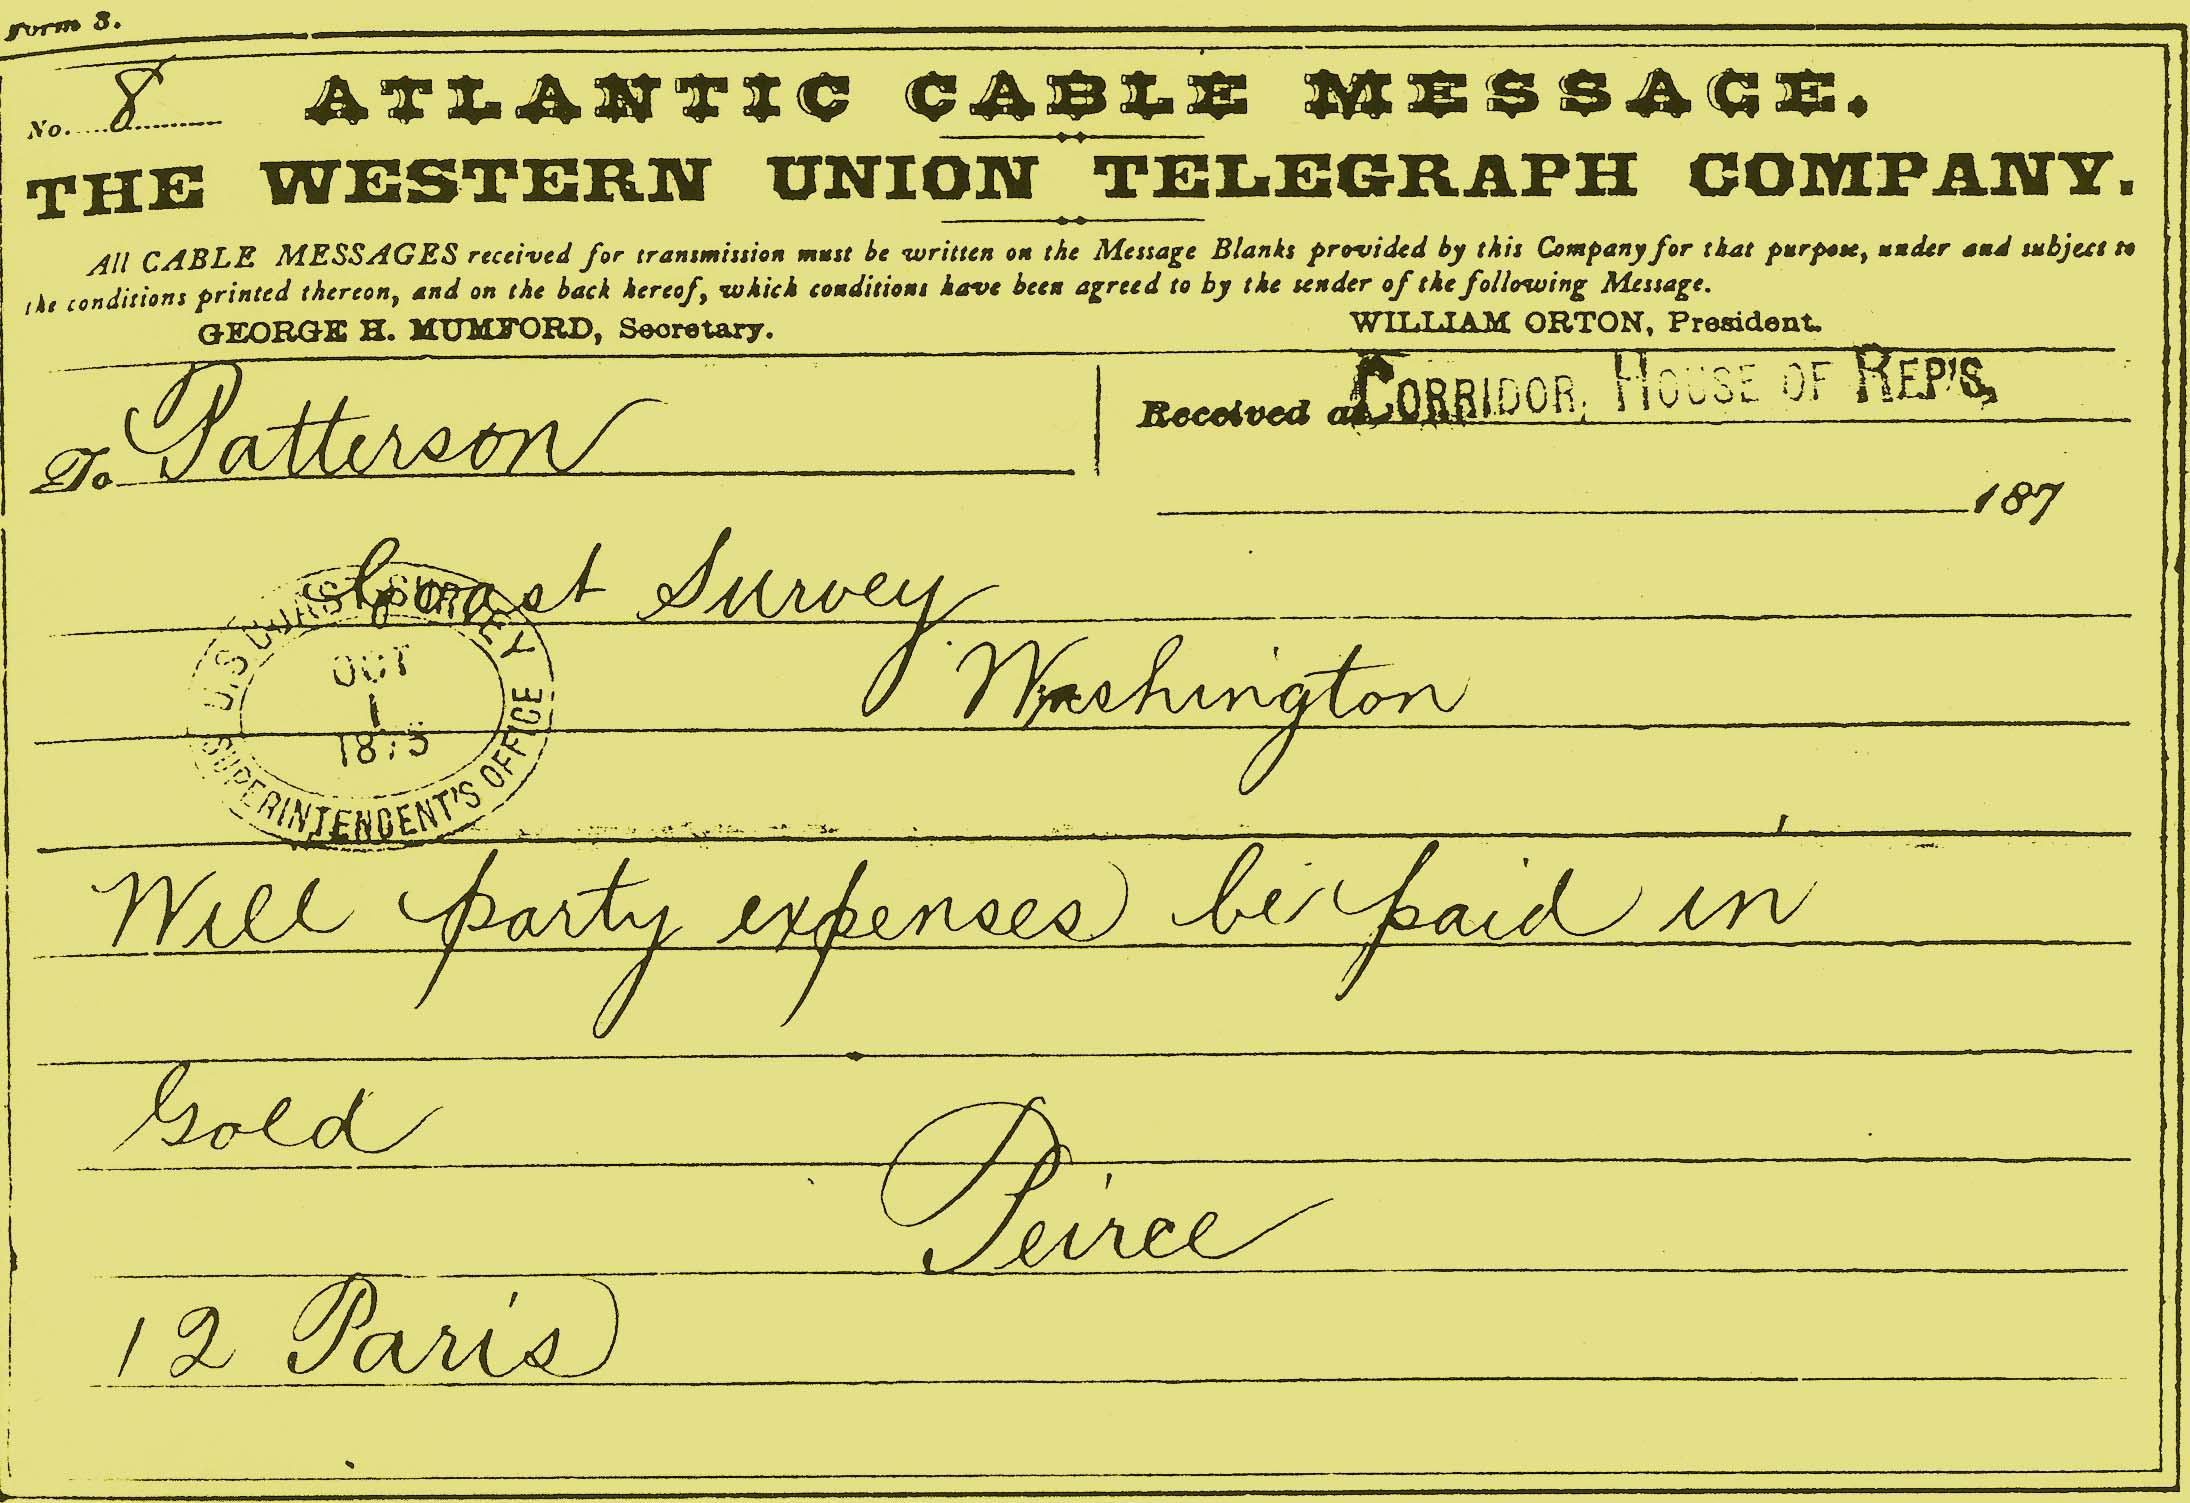 Form 3.
No. 8 ATLANTIC CABLE MESSAGE.
THE WESTERN UNION TELEGRAPH COMPANY.
All CABLE MESSAGES received for transmission must be written on the Message Blanks provided by this Company for that purpose, under and subject to
the conditions printed thereon, and on the back hereof, which conditions have been agreed to by the sender of the following Message.
GEORGE H. MUMFORD, Secretary. WILLIAM ORTON, President.
To Patterson
Received at CORRIDOR, HOUSE OF REP'S,
187
Coast Survey
Washington
U.S. COAST SURVEY
OCT
1
1875
SUPERINTENDENT'S OFFICE
Will party expenses be paid in
Gold
Peirce
12 Paris